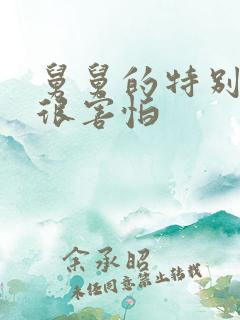 舅舅的特别
很害怕
余承昭
未经同意禁止转载